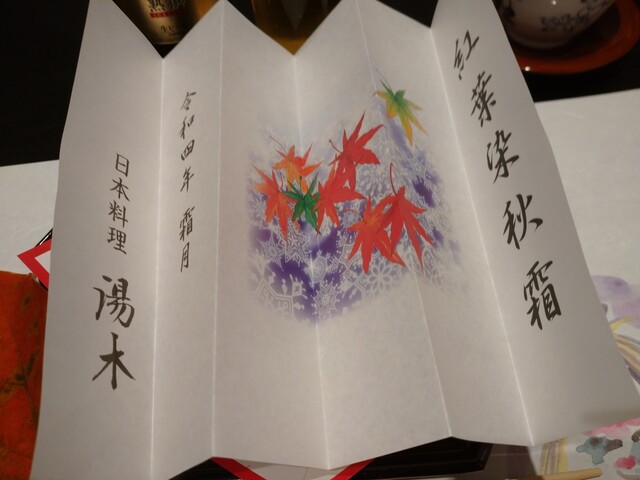 紅葉染秋霜
令和四年 霜月
日本料理 湯木